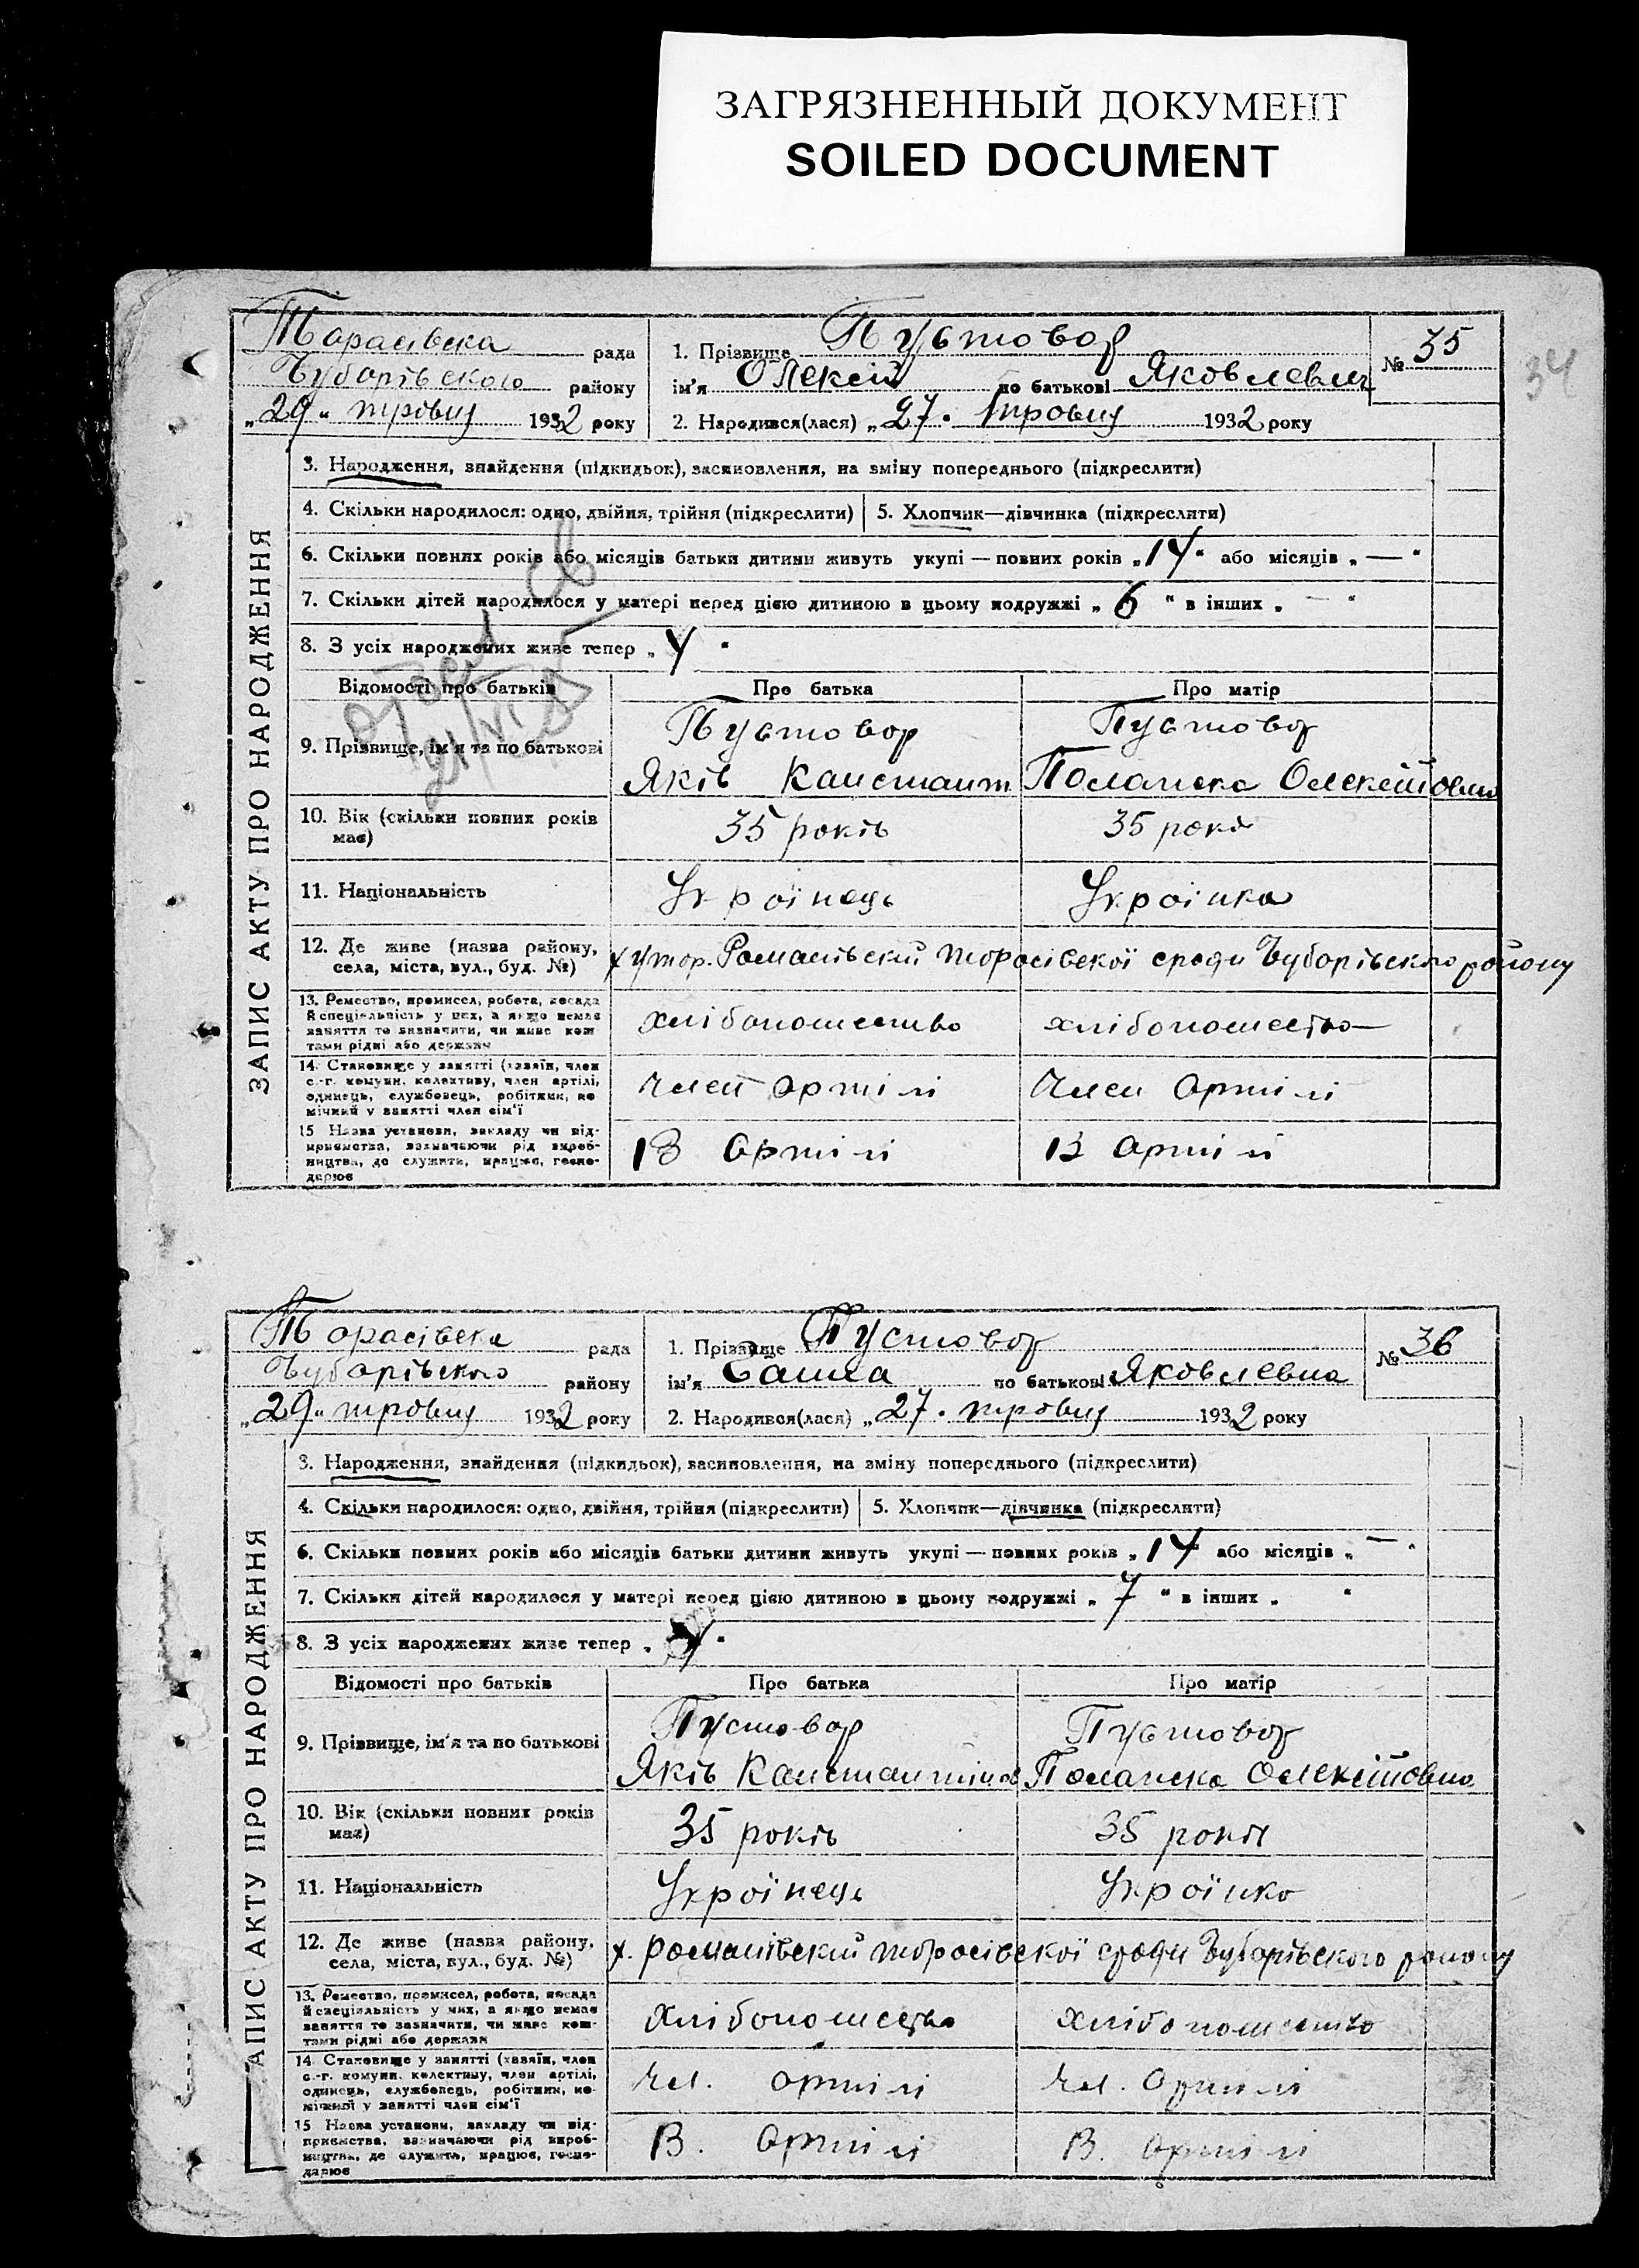 ЗАГРЯЗНЕННЫЙ ДОКУМЕНТ
SOILED DOCUMENT
34
Тарасівска рада
Чубарівського району
„29“ травня 1932 року
1. Прізвище Пустовар
ім'я Олексій по батькові Яковлевич
2. Народився(лася) „27“ травня 1932 року
№ 35
ЗАПИС АКТУ ПРО НАРОДЖЕННЯ
3. Народження, знайдення (підкидьок), засиновлення, на зміну попереднього (підкреслити)
4. Скільки народилося: одно, двійня, трійня (підкреслити) 5. Хлопчик—дівчинка (підкреслити)
6. Скільки повних років або місяців батьки дитини живуть укупі — повних років „14“ або місяців „—“
7. Скільки дітей народилося у матері перед цією дитиною в цьому подружжі „6“ в інших „—“
8. З усіх народжених живе тепер „4“
Відомості про батьків Про батька Про матір
9. Прізвище, ім'я та по батькові
Пустовар Пустовар
Яків Канстант
Олексіївна
10. Вік (скільки повних років має) 35 років 35 років
11. Національність Українець Українка
12. Де живе (назва району, села, міста, вул., буд. №) хутор. Романівский Тарасівскої сради Чубарівського району
13. Ремество, промисел, робота, посада й спеціяльність у них, а якщо немає заняття то зазначити, чи живе коштами рідні або держави хлібопашество хлібопашество
14. Становище у занятті (хазяїн, член с.-г. комуни, колективу, член артілі, одинець, службовець, робітник, помічний у занятті член сім'ї Член артілі Член артілі
15 Назва установи, закладу чи підприємства, зазначаючи рід виробництва, де служить, працює, господарює В артілі В артілі
Тарасівска рада
Чубарівського району
„29“ травня 1932 року
1. Прізвище Пустовар
ім'я по батькові Яковлевна
2. Народився(лася) „27“ травня 1932 року
№ 36
ЗАПИС АКТУ ПРО НАРОДЖЕННЯ
3. Народження, знайдення (підкидьок), засиновлення, на зміну попереднього (підкреслити)
4. Скільки народилося: одно, двійня, трійня (підкреслити) 5. Хлопчик—дівчинка (підкреслити)
6. Скільки повних років або місяців батьки дитини живуть укупі — повних років „14 або місяців „—“
7. Скільки дітей народилося у матері перед цією дитиною в цьому подружжі „7“ в інших „ “
8. З усіх народжених живе тепер
Відомості про батьків Про батька Про матір
9. Прізвище, ім'я та по батькові
Пустовар Пустовар
Яків Канстантінов
Олексіївна
10. Вік (скільки повних років має) 35 років 35 років
11. Національність Українець Українка
12. Де живе (назва району, села, міста, вул., буд. №) х. Романівский Тарасівскої сради Чубарівського району
13. Ремество, промисел, робота, посада й спеціяльність у них, а якщо немає заняття то зазначити, чи живе коштами рідні або держави хлібопашество хлібопашество
14 Становище у занятті (хазяїн, член с.-г. комуни, колективу, член артілі, одинець, службовець, робітник, помічний у занятті член сім'ї Чл. артілі Чл. артілі
15 Назва установи, закладу чи підприємства, зазначаючи рід виробництва, де служить, працює, господарює В. артілі В. артілі